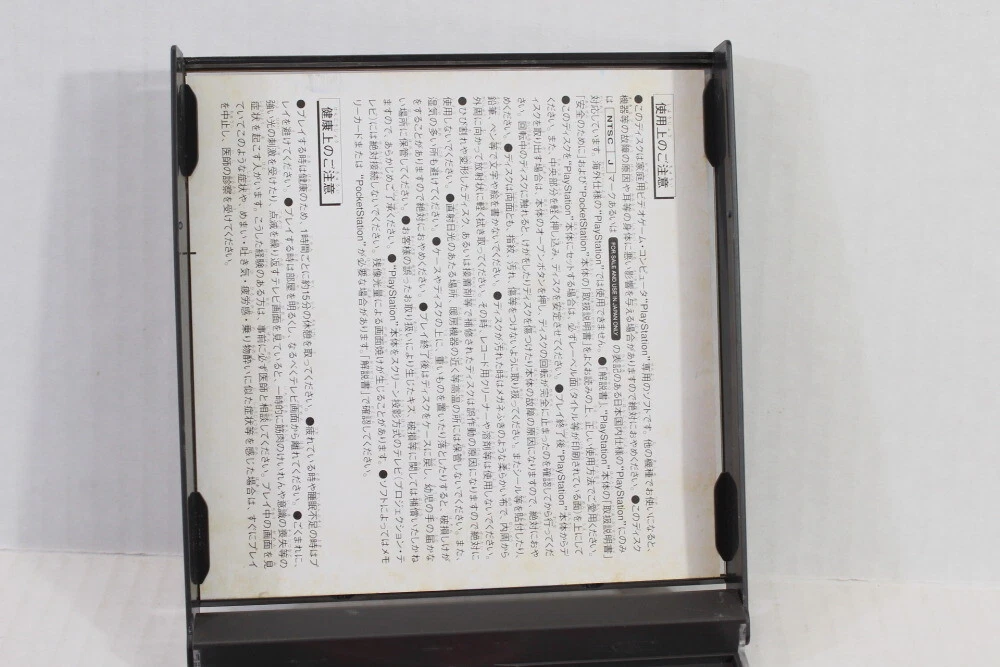 使用上のご注意
●このディスクは家庭用ビデオゲーム・コンピュータ“PlayStation”専用のソフトです。他の機種でお使いになると、
機器等の故障の原因や耳等の身体に悪い影響を与える場合がありますので絶対におやめください。●このディスク
は NTSC J マークあるいは FOR SALE AND USE IN JAPAN ONLY の表記のある日本国内仕様の“PlayStation”にのみ
対応しています。海外仕様の“PlayStation”では使用できません。●「解説書」、“PlayStation”本体の「取扱説明書」
「安全のために」および“PocketStation”本体の「取扱説明書」をよくお読みの上、正しい使用方法でご愛用ください。
●このディスクを“PlayStation”本体にセットする場合は、必ずレーベル面（タイトル等が印刷されている面）を上にして
ください。また、中央部分を軽く押し込み、ディスクを安定させてください。●プレイ終了後“PlayStation”本体からデ
ィスクを取り出す場合は、本体のオープンボタンを押し、ディスクの回転が完全に止まったのを確認してから行ってくだ
さい。回転中のディスクに触れると、けがをしたりディスクを傷つけたり本体の故障の原因になりますので、絶対におや
めください。●ディスクは両面とも、指紋、汚れ、傷等をつけないように取り扱ってください。またシール等を貼付したり
鉛筆、ペン等で文字や絵を書かないでください。●ディスクが汚れた時はメガネふきのような柔らかい布で、内周から
外周に向かって放射状に軽く拭き取ってください。その時、レコード用クリーナーや溶剤等は使用しないでください。
●ひび割れや変形したディスク、あるいは接着剤等で補修されたディスクは誤作動の原因になりますので絶対に
使用しないでください。●直射日光のあたる場所、暖房機器の近く等高温の所には保管しないでください。また、
湿気の多い所も避けてください。●ケースやディスクの上に、重いものを置いたり落としたりすると、破損しけが
をすることがありますので絶対におやめください。●プレイ終了後はディスクをケースに戻し、幼児の手の届かな
い場所に保管してください。●お客様の誤ったお取り扱いにより生じたキズ、破損等に関しては補償いたしかね
ますので、あらかじめご了承ください。●“PlayStation”本体をスクリーン投影方式のテレビ（プロジェクション・テ
レビ）には絶対接続しないでください。残像光量による画面焼けが生じることがあります。●ソフトによってはメモ
リーカードまたは“PocketStation”が必要な場合があります。「解説書」で確認してください。
健康上のご注意
●プレイする時は健康のため、1時間ごとに約15分の休憩を取ってください。●疲れている時や睡眠不足の時はプ
レイを避けてください。●プレイする時は部屋を明るくし、なるべくテレビ画面から離れてください。●ごくまれに、
強い光の刺激を受けたり、点滅を繰り返すテレビ画面を見ていると、一時的に筋肉のけいれんや意識の喪失等の
症状を起こす人がいます。こうした経験のある方は、事前に必ず医師と相談してください。プレイ中の画面を見
ていてこのような症状や、めまい・吐き気・疲労感・乗り物酔いに似た症状等を感じた場合は、すぐにプレイ
を中止し、医師の診察を受けてください。